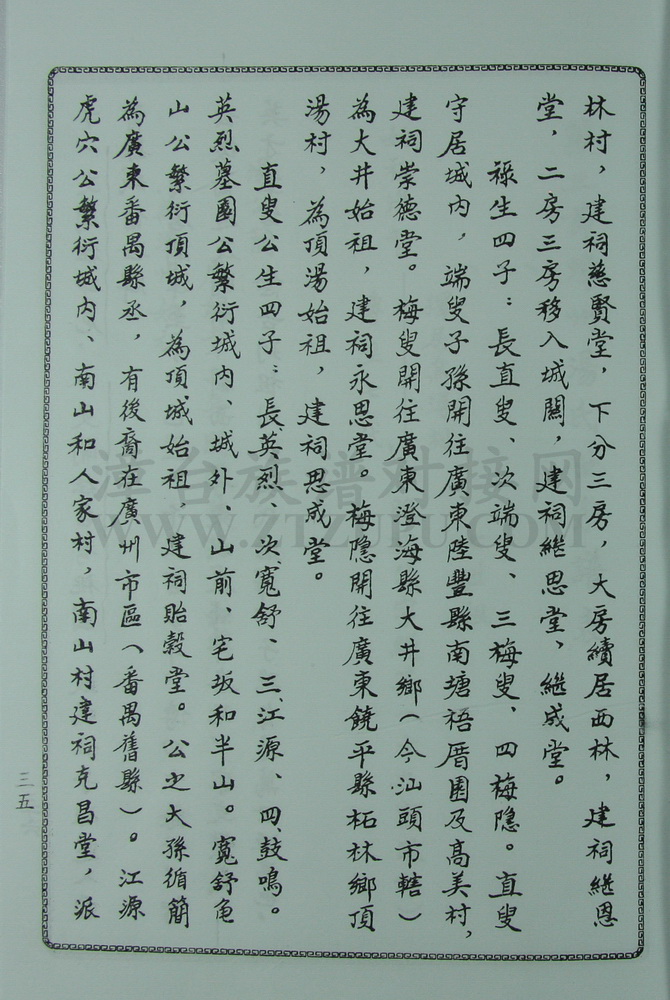 林村，建祠慈賢堂，下分三房，大房續居西林，建祠繼恩
堂，二房三房移入城關，建祠繼思堂，繼成堂。
祿生四子：長直叟、次端叟、三梅叟、四梅隐。直叟
守居城内，端叟子孫開往廣東陸豐縣南塘梧厝圍及高美村，
建祠崇德堂。梅叟開往廣東澄海縣大井鄉（今汕頭市轄）
為大井始祖，建祠永思堂。梅隐開往廣東饒平縣柘林鄉頂
湯村，為頂湯始祖，建祠思成堂。
直叟公生四子：長、英烈、次、寬舒、三、江源、四、鼓鳴。
英烈墓園公繁衍城内、城外、山前、宅坂和半山。寬舒龟
山公繁衍頂城，為頂城始祖，建祠貽穀堂。公之大孫循簡
為廣東番禺縣丞，有後裔在廣州市區（番禺舊縣）。江源
虎穴公繁衍城内、南山和人家村，南山村建祠克昌堂，派
三五
漳台族譜对接网
www.ztzupu.com